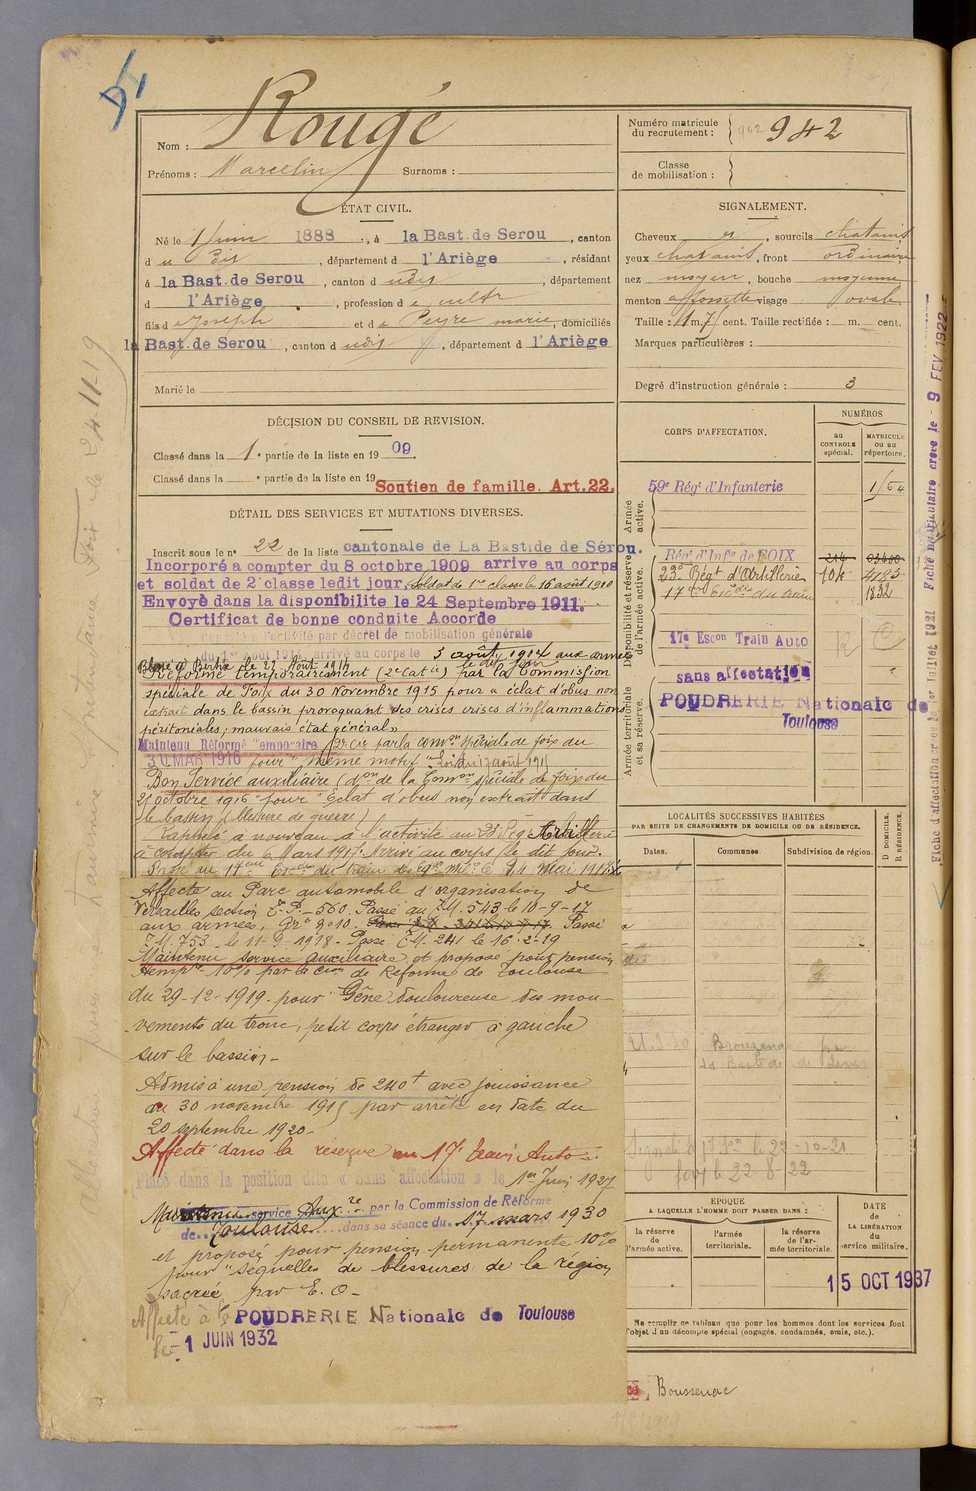 Nom : Rougé
Prénoms : Marcelin Surnoms :
Numéro matricule du recrutement : 942 942
Classe de mobilisation :
ÉTAT CIVIL.
Né le 1 juin 1888, à la Bast. de Serou, canton
d u dis, département d l'Ariège, résidant
à la Bast. de Serou, canton d udis, département
d l'Ariège, profession d e cultr
fils d e Joseph et d e Peyre marie, domiciliés
la Bast. de Serou, canton d udis, département d l'Ariège
Marié le
SIGNALEMENT.
Cheveux, sourcils chatains
yeux chatains, front ordinaire
nez moyen, bouche moyenne
menton à fossette visage ovale
Taille : 1 m. 7 cent. Taille rectifiée : m. cent.
Marques particulières :
Degré d'instruction générale : 3
DÉCISION DU CONSEIL DE REVISION.
Classé dans la 1e partie de la liste en 1909.
Classé dans la e partie de la liste en 19
Soutien de famille. Art. 22.
DÉTAIL DES SERVICES ET MUTATIONS DIVERSES.
Inscrit sous le n° 22 de la liste cantonale de La Bastide de Sérou.
Incorporé a compter du 8 octobre 1909 arrive au corps
et soldat de 2e classe ledit jour. Soldat de 1re classe le 16 août 1910
Envoyé dans la disponibilite le 24 Septembre 1911.
Certificat de bonne conduite Accorde
Rappelé à l'activité par décret de mobilisation générale
du 1er Août 1914, arrivé au corps le 3 août 1914 aux armées
le dit jour
Blessé à Bertrix le 22 Août 1914
Réformé temporairement (2e Catie) par la Commission
spéciale de Foix du 30 Novembre 1915 pour « éclat d'obus non
extrait dans le bassin provoquant des crises crises d'inflammations
péritonéales ; mauvais état général »
Maintenu Réformé Temporaire 2e cie par la comon spéciale de foix du
30 MAR 1916 pour même motif Loi du 17 août 1915
Bon Service auxiliaire (don de la Comon spéciale de foix du
21 octobre 1916 pour "Eclat d'obus non extrait dans
le bassin (blessure de guerre)
Rappelé à nouveau à l'activité au 23e Rég Artillerie
à compter du 6 Mars 1917. Arrivé au corps le dit jour.
Affecté au Parc automobile d'organisation de
Versailles section T.P. 560. Passé au T.M. 543 le 10-9-17
aux armées, Passé
T.M. 753 le 11-9-1918. Passé T.M. 241 le 16-2-19
Maintenu service auxiliaire et proposé pour pension
temprre 10% par la Cion de Réforme de Toulouse
du 29-12-1919. pour "Gêne douloureuse des mou-
vements du tronc, petit corps étranger à gauche
sur le bassin -
Admis à une pension de 240f avec jouissance
du 30 novembre 1915 par arrêté en date du
20 septembre 1920 -
Affecté dans la réserve au 17e train Auto
Placé dans la position dite « Sans affectation » le 1er Juin 1927
Maintenu service Auxre par la Commission de Réforme
de Toulouse dans sa séance du 17 mars 1930
et proposé pour pension permanente 10%
pour "séquelles de blessures de la région
sacrée par E. O -
Affecté à la POUDRERIE Nationale de Toulouse
le 1 JUIN 1932
CORPS D'AFFECTATION.
NUMÉROS
au CONTROLE spécial.
MATRICULE ou au répertoire.
Armée active.
59e Régt d'Infanterie
Disponibilité et réserve de l'armée active.
Régt d'Infie de FOIX 214
23e Régt d'Artillerie 4185
1832
17e Escon Train Auto
sans affectation
Armée territoriale et sa réserve.
POUDRERIE Nationale de
Toulouse
LOCALITÉS SUCCESSIVES HABITÉES
PAR SUITE DE CHANGEMENTS DE DOMICILE OU DE RÉSIDENCE.
Dates. Communes. Subdivision de région. D DOMICILE. R RÉSIDENCE.
ÉPOQUE
A LAQUELLE L'HOMME DOIT PASSER DANS :
la réserve de l'armée active.
l'armée territoriale.
la réserve de l'armée territoriale.
DATE de LA LIBÉRATION du service militaire.
15 OCT 1937
Ne remplir ce tableau que pour les hommes dont les services font
l'objet d'un décompte spécial (engagés, condamnés, omis, etc.).
Boussenac
Fiche matriculaire créée le 9 FEV 1922